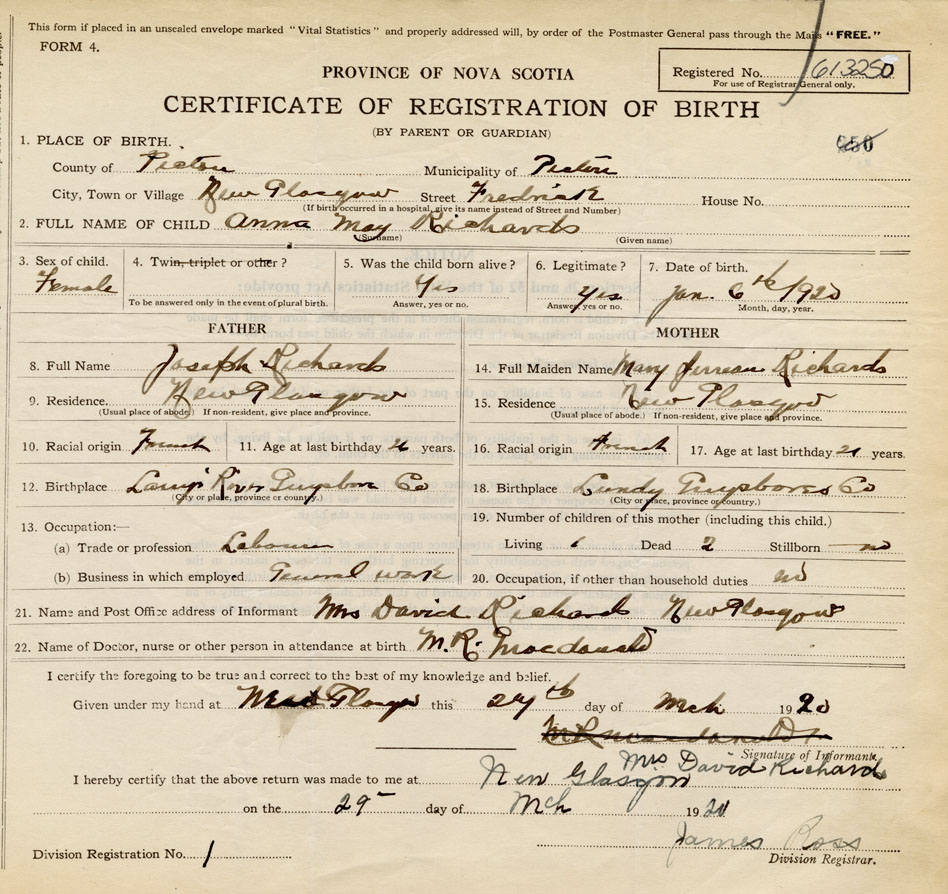 This form if placed in an unsealed envelope marked "Vital Statistics" and properly addressed will, by order of the Postmaster General pass through the Mails "FREE."
FORM 4.
PROVINCE OF NOVA SCOTIA
Registered No. 613250
For use of Registrar General only.
CERTIFICATE OF REGISTRATION OF BIRTH
(BY PARENT OR GUARDIAN)
1. PLACE OF BIRTH.
County of Pictou Municipality of Pictou
City, Town or Village New Glasgow Street Fredrick House No.
(If birth occurred in a hospital, give its name instead of Street and Number)
2. FULL NAME OF CHILD Anna May Richards
(Surname) (Given name)
3. Sex of child. 4. Twin, triplet or other? 5. Was the child born alive? 6. Legitimate? 7. Date of birth.
Female Yes Yes Jan. 6th/1920
To be answered only in the event of plural birth. Answer, yes or no. Answer, yes or no. Month, day, year.
FATHER MOTHER
8. Full Name Joseph Richards 14. Full Maiden Name Mary Richards
9. Residence. New Glasgow 15. Residence New Glasgow
(Usual place of abode) If non-resident, give place and province. (Usual place of abode.) If non-resident, give place and province.
10. Racial origin French 11. Age at last birthday years. 16. Racial origin French 17. Age at last birthday 21 years.
12. Birthplace River Co 18. Birthplace Lundy Guysboro Co
(City or place, province or country.) (City or place, province or country.)
13. Occupation:— 19. Number of children of this mother (including this child.)
(a) Trade or profession Labourer Living Dead 2 Stillborn no
(b) Business in which employed General work 20. Occupation, if other than household duties no
21. Name and Post Office address of Informant Mrs David Richards New Glasgow
22. Name of Doctor, nurse or other person in attendance at birth M.R. Macdonald
I certify the foregoing to be true and correct to the best of my knowledge and belief.
Given under my hand at Glasgow this th day of Mch 1920
Signature of Informant.
Mrs David Richard
I hereby certify that the above return was made to me at New Glasgow
on the 29 day of Mch 1920
James Ross
Division Registration No. 1 Division Registrar.